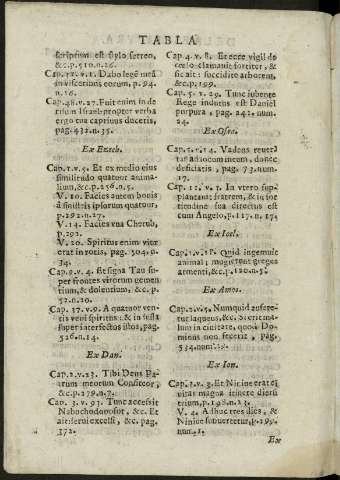 TABLA
scriptum est stylo ferreo,
&c.p.510.n.26.
Cap.31.v.1. Dabo legẽ meã
in visceribus eorum, p.94.
n.16.
Cap.48.v.27. Fuit enim in de
risum Israel: propter verba
ergo tua captivus duceris,
pag.432.n.35.
Ex Ezech.
Cap.1.v.5. Et ex medio eius
similitudo quatuor anima-
lium, &c.p.256.n.5.
V. 10. Facies autem bovis
à sinistris ipsorum quatuor,
p.292.n.27.
V.14. Facies vna Cherub,
p.292.
V. 20. Spiritus enim vitæ
erat in rotis, pag. 504.n.
34.
Cap.9.v.4. Et signa Tau su-
per frontes virorum gemen
tium, & dolentium, &c. p.
52.n.20.
Cap. 37.v.9. A quatuor ven-
tis veni spiritus: & insuffla
super interfectos istos, pag.
526.n.14.
Ex Dan.
Cap.2.v.23. Tibi Deus Pa-
trum meorum Confiteor,
&c.p.279.n.7.
Cap. 3. v. 93. Tunc accessit
Nabochodonosor, &c. Et
ait: servi excelsi, &c. pag.
372.
Cap 4.v. 8. Et ecce vigil de
cœlo clamavit fortiter, &
sic ait: succidite arborem,
&c.p.199.
Cap. 5. v. 29. Tunc iubente
Rege indutus est Daniel
purpura, pag. 242. num.
24.
Ex Osea.
Cap.2.v.14. Vadens reverta
tur ad locum meum, donec
deficiatis, pag. 73. num.
17.
Cap. 12. v. 3. In vtero sup-
plantavit fratrem, & in for
titudine sua directus est
cum Angelo, p.117.n. 17.
Ex Ioel.
Cap.1.v.18. Quid ingemuit
animal; mugierunt greges
armenti, &c.p.120.n.5.
Ex Amos.
Cap.2.v.5. Numquid aufere-
tur laqueus, &c. Si erit ma-
lum in civitate, quod Do-
minus non fecerit, pag.
534.num.
Ex Ion.
Cap.3.v. 3. Et Ninive erat ci
vitas magna itinere dieru
trium, p.198.n.23.
V. 4. Adhuc tres dies, &
Ninive subvertetur, p.299.
num.
Ex